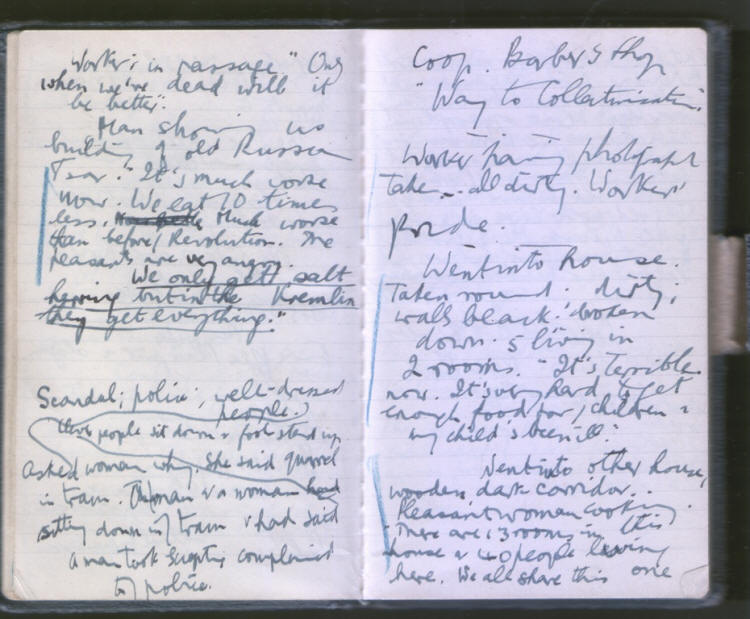 Worker in passage "Only
when we're dead will it
be better".
Man showing us
building of old Russian
Tsar. "It's much worse
now. We eat 10 times
less. Much worse
than before / Revolution. The
peasants are very angry.
We only get salt
herring but in the Kremlin
they get everything."
Scandal; police; well-dressed
people.
people sit down & fool stand up
Asked woman why. She said quarrel
in tram. man & a woman had
sitting down in / tram & had said
a man took complained
to / police.
Coop. Barber's Shop
"Way to Collectivisation".
Worker having photograph
taken... all dirty. Workers'
pride.
Went into house.
Taken round. dirty;
walls black: broken
down. 5 living in
2 rooms. "It's terrible
now. It's very hard to get
enough food for / children &
my child's been ill."
Went into other house,
wooden, dark corridor..
Peasant woman cooking.
"There are 13 rooms in this
house & 40 people living
here. We all share this one